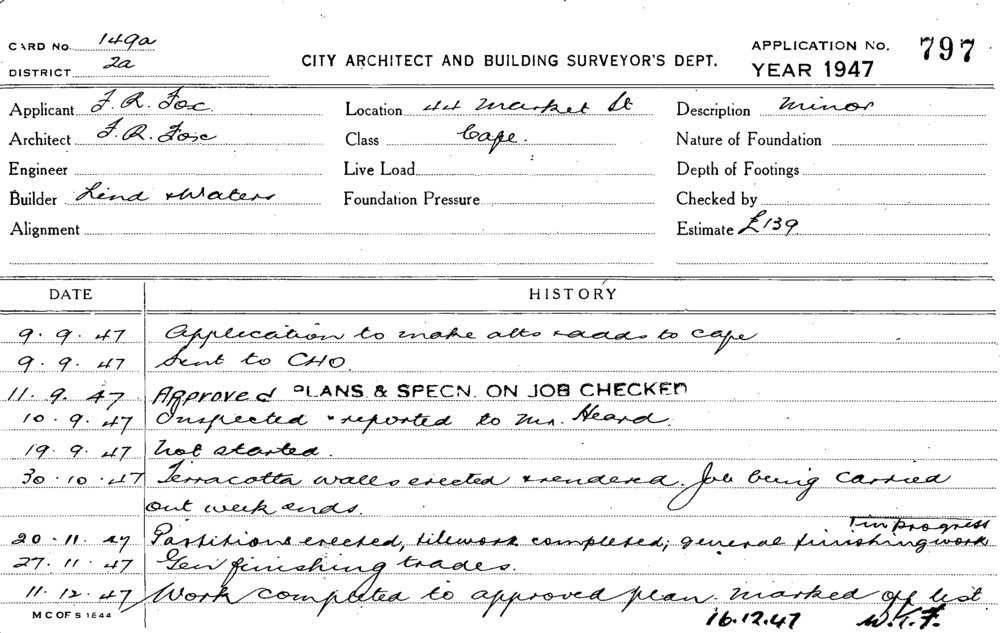 CARD No. 149a
DISTRICT 2a
CITY ARCHITECT AND BUILDING SURVEYOR'S DEPT.
APPLICATION No. 797
YEAR 1947
Applicant F. R. Fox Location 44 Market St Description Minor
Architect F. R. Fox Class Cafe. Nature of Foundation
Engineer Live Load Depth of Footings
Builder Lind & Waters Foundation Pressure Checked by
Alignment Estimate £139
DATE HISTORY
9. 9. 47 Application to make alts & adds to cafe
9. 9. 47 Sent to CHO.
11. 9. 47 Approved PLANS & SPECN. ON JOB CHECKED
10. 9. 47 Inspected & reported to Mr. Heard.
19. 9. 47 Not started.
30. 10. 47 Terracotta walls erected & rendered. Job being carried
out week ends.
20. 11. 47 Partitions erected, tilework completed; general finishing work in progress
27. 11. 47 Gen finishing trades.
11. 12. 47 Work completed to approved plan. Marked off list
M C OF S 1644 16.12.47 W.T.F.